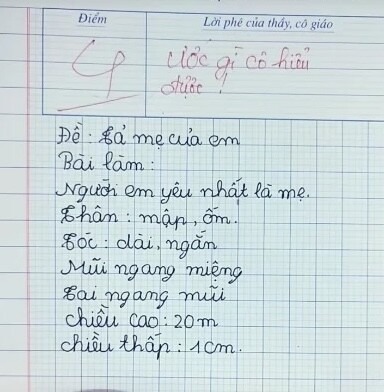 Điểm
Lời phê của thầy, cô giáo
4
Ước gì cô hiểu
được !
Đề : Tả mẹ của em
Bài làm :
Người em yêu nhất là mẹ.
Thân : mập, ốm.
Tóc : dài, ngắn
Mũi ngang miệng
Tai ngang mũi
Chiều cao : 20 m
chiều thấp : 1cm.